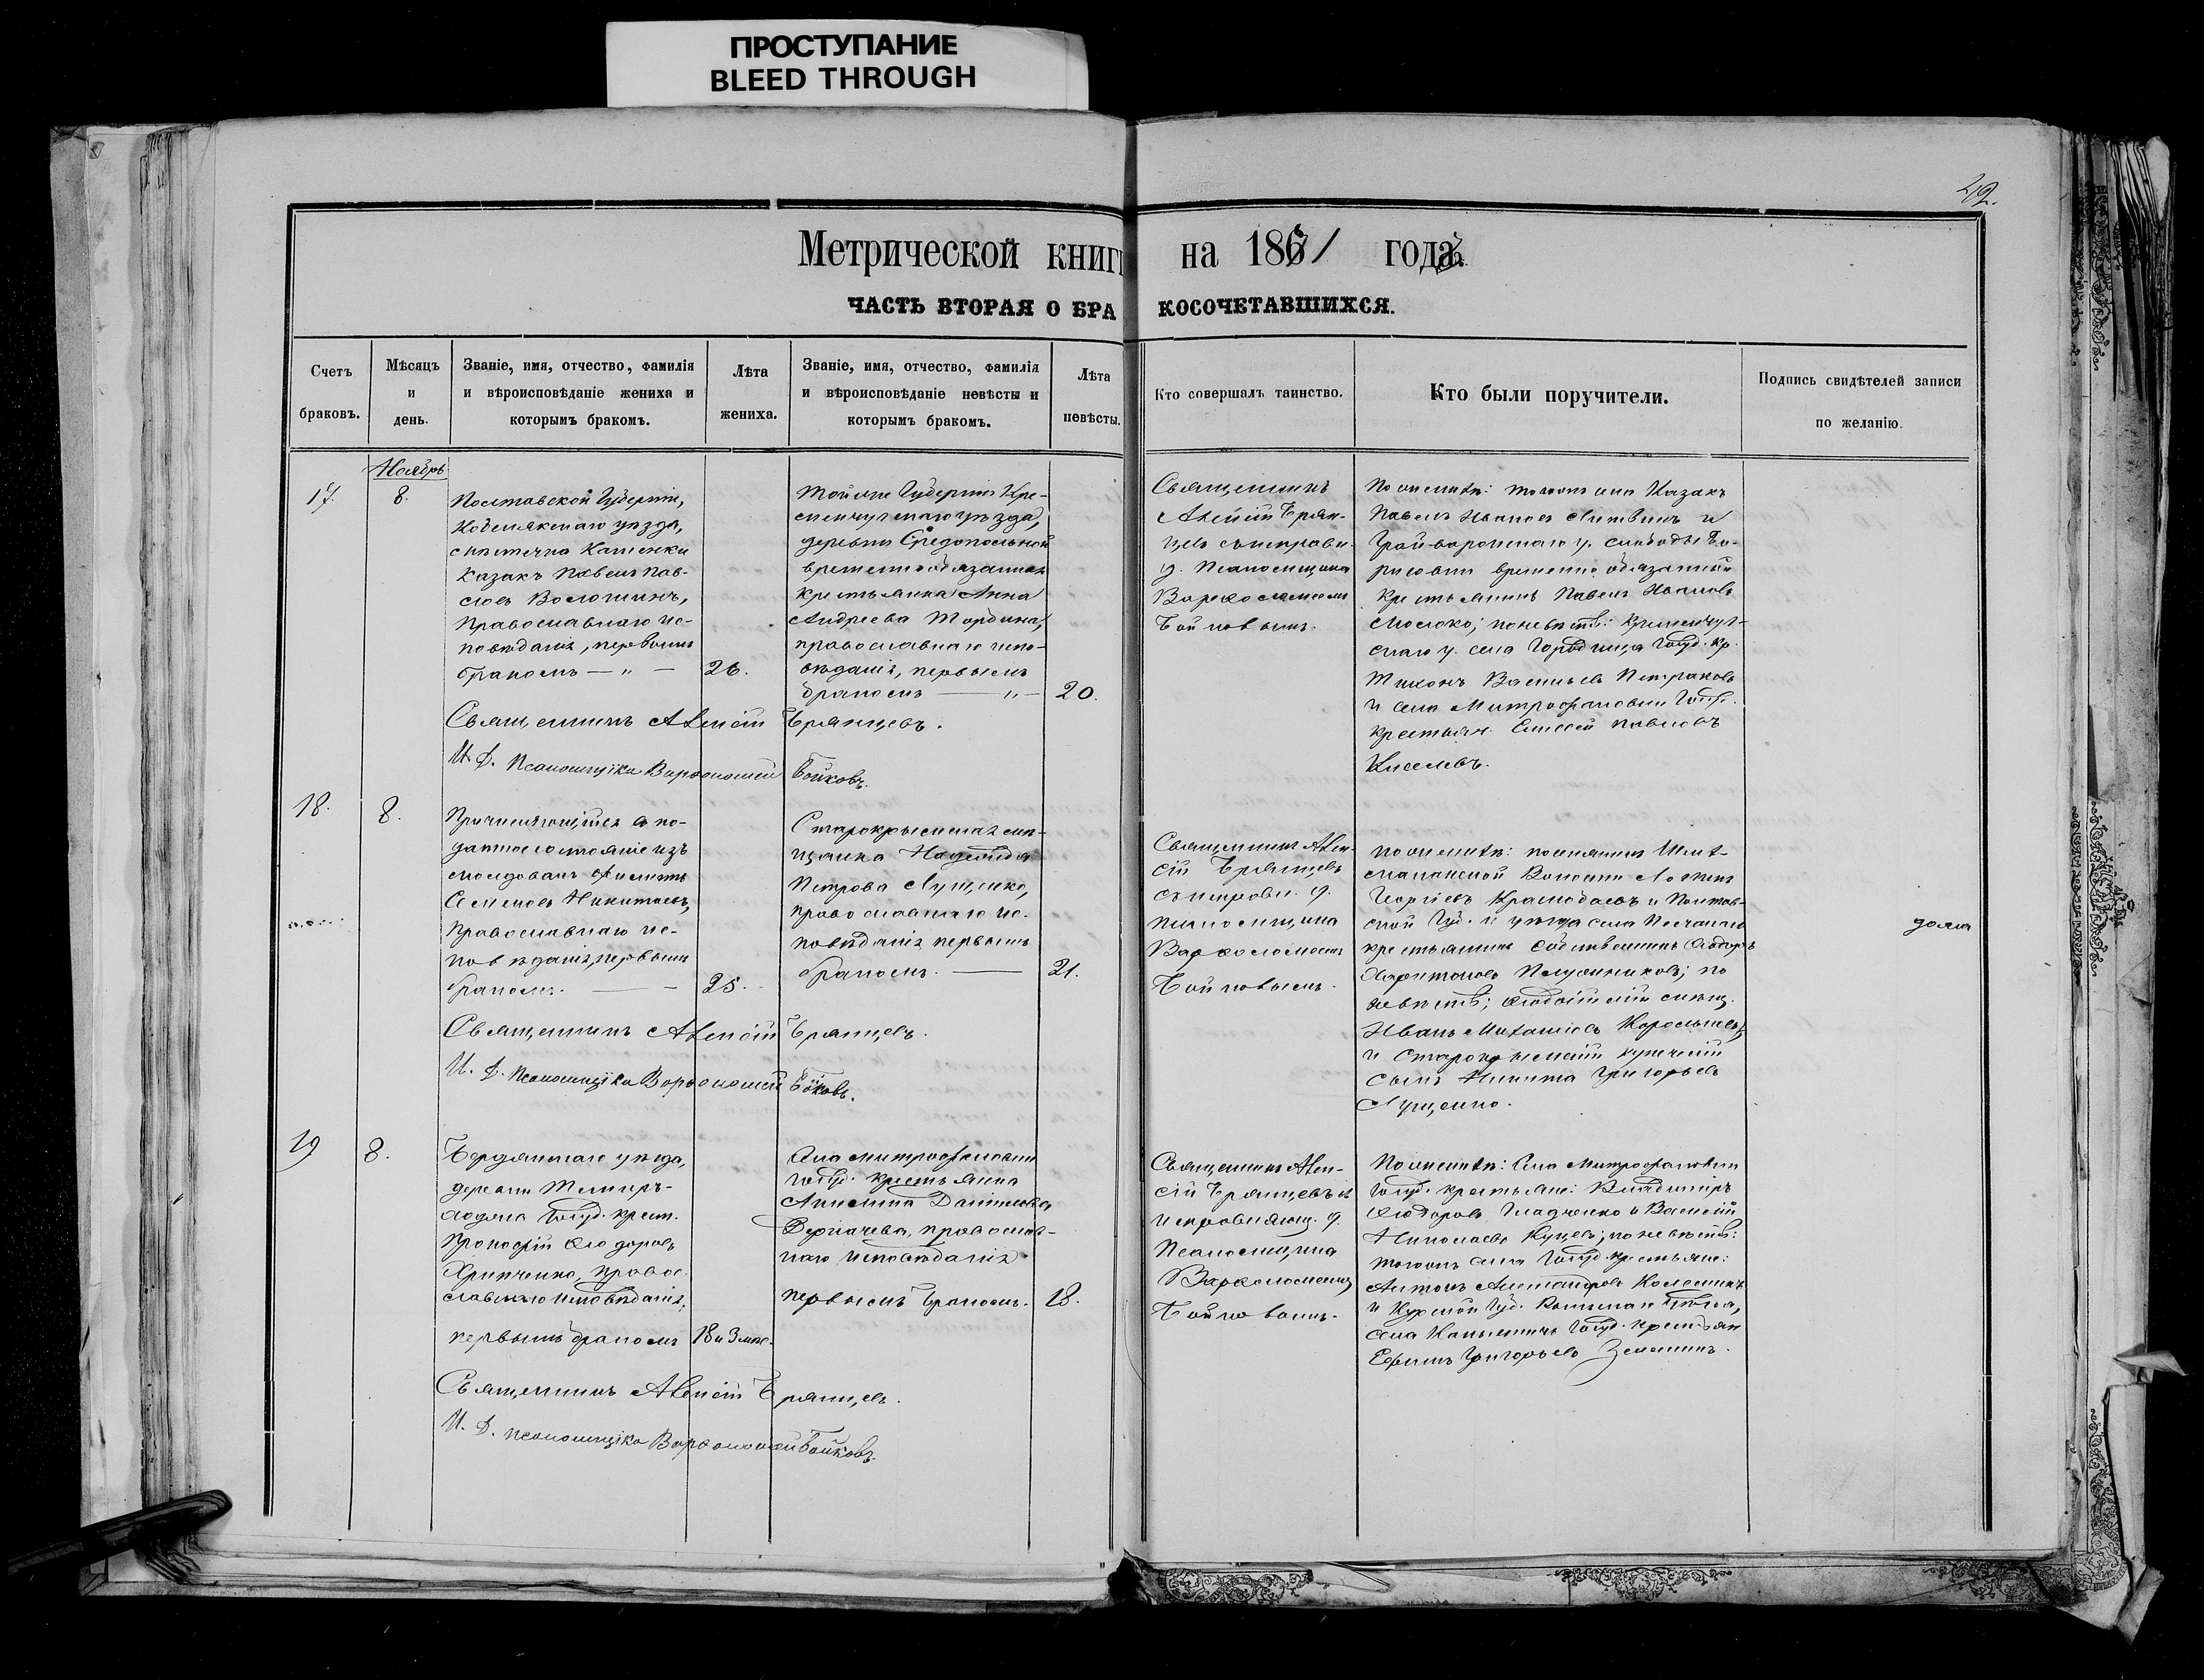 ПРОСТУПАНИЕ
BLEED THROUGH
Метрической книги на 1871 года
ЧАСТЬ ВТОРАЯ О БРАКОСОЧЕТАВШИХСЯ.
Счетъ браковъ.
Мѣсяцъ и день.
Званіе, имя, отчество, фамилія и вѣроисповѣданіе жениха и которымъ бракомъ.
Лѣта жениха.
Званіе, имя, отчество, фамилія и вѣроисповѣданіе невѣсты и которымъ бракомъ.
Лѣта невѣсты.
Кто совершалъ таинство.
Кто были поручители.
Подпись свидѣтелей записи по желанію.
Ноябрь
17.
8.
Полтавской Губерніи,
Кобелякскаго уѣзда,
мѣстечка Каменки
Казакъ Павелъ Пав-
ловъ Волошинъ,
Православнаго ис-
повѣданія, первымъ
бракомъ — „ —
26.
Той же Губерніи Кре-
менчугскаго уѣзда,
деревни
временнообязанная
крестьянка Анна
Андреева
православнаго испо-
вѣданія, первымъ
бракомъ — „ —
20.
Священникъ
Алексій Брян-
цевъ съ исправл.
д. Псаломщика
Варѳоломеемъ
Бойковымъ.
По женихѣ: тогожъ села Казакъ
Павелъ Ивановъ Литвинъ и
Грайворонскаго у. слободы Бо-
рисовки временно обязанный
крестьянинъ Павелъ Ивановъ
Молоко; по невѣстѣ: Кременчуг-
скаго у. села Городища Госуд. кр.
Тихонъ Васильевъ Петраковъ
и села Митрофановки Госуд.
крестьян. Елисей Павловъ
Киселевъ.
Священникъ Алексій Брянцевъ.
И. Д. Псаломщика Варѳоломей Бойковъ.
18.
8.
Причисляющійся въ по-
датное состояніе изъ
молдованъ Филиппъ
Семеновъ Никитовъ,
Православнаго ис-
повѣданія, первымъ
бракомъ. —
25.
Старокрымская мѣ-
щанка Надежда
Петрова Лущенко,
православнаго ис-
повѣданія первымъ
бракомъ. —
21.
Священникъ Алек-
сій Брянцевъ
съ исправл. д.
псаломщика
Варѳоломеемъ
Бойковымъ.
по женихѣ: поселянинъ
Волости
Георгіевъ и Полтав-
ской Губ. и уѣзда села
крестьянинъ собственникъ Ѳедоръ
Харитоновъ по
невѣстѣ; Ѳеодосійскій мѣщ.
Иванъ Михаиловъ
и Старокрымскій купеческій
сынъ Никита Григорьевъ
Лущенко.
Священникъ Алексій Брянцевъ.
И. Д. Псаломщика Варѳоломей Бойковъ.
19
8.
Бердянскаго уѣзда,
деревни Темиръ-
Ходжа Госуд. крест.
Прокофій Ѳедоровъ
Хрипченко, право-
славнаго исповѣданія,
первымъ бракомъ
18 и 3 мѣс.
Села Митрофановки
Госуд. крестьянка
Анисія Данилова
Дергачева, православ-
наго исповѣданія
первымъ бракомъ.
18.
Священникъ Алек-
сій Брянцевъ съ
исправляющ. д.
Псаломщика
Варѳоломеемъ
Бойковымъ.
По женихѣ: Села Митрофановки
Госуд. крестьяне: Владиміръ
Ѳедоровъ Гладченко и Василій
Николаевъ Куцевъ; по невѣстѣ:
тогожъ села Госуд. крестьяне:
Антонъ Александровъ Колесникъ
и Курской Губ.
села Госуд. крестьян.
Ефимъ Григорьевъ Зеленинъ.
Священникъ Алексій Брянцевъ.
И. Д. псаломщика Варѳоломей Бойковъ.